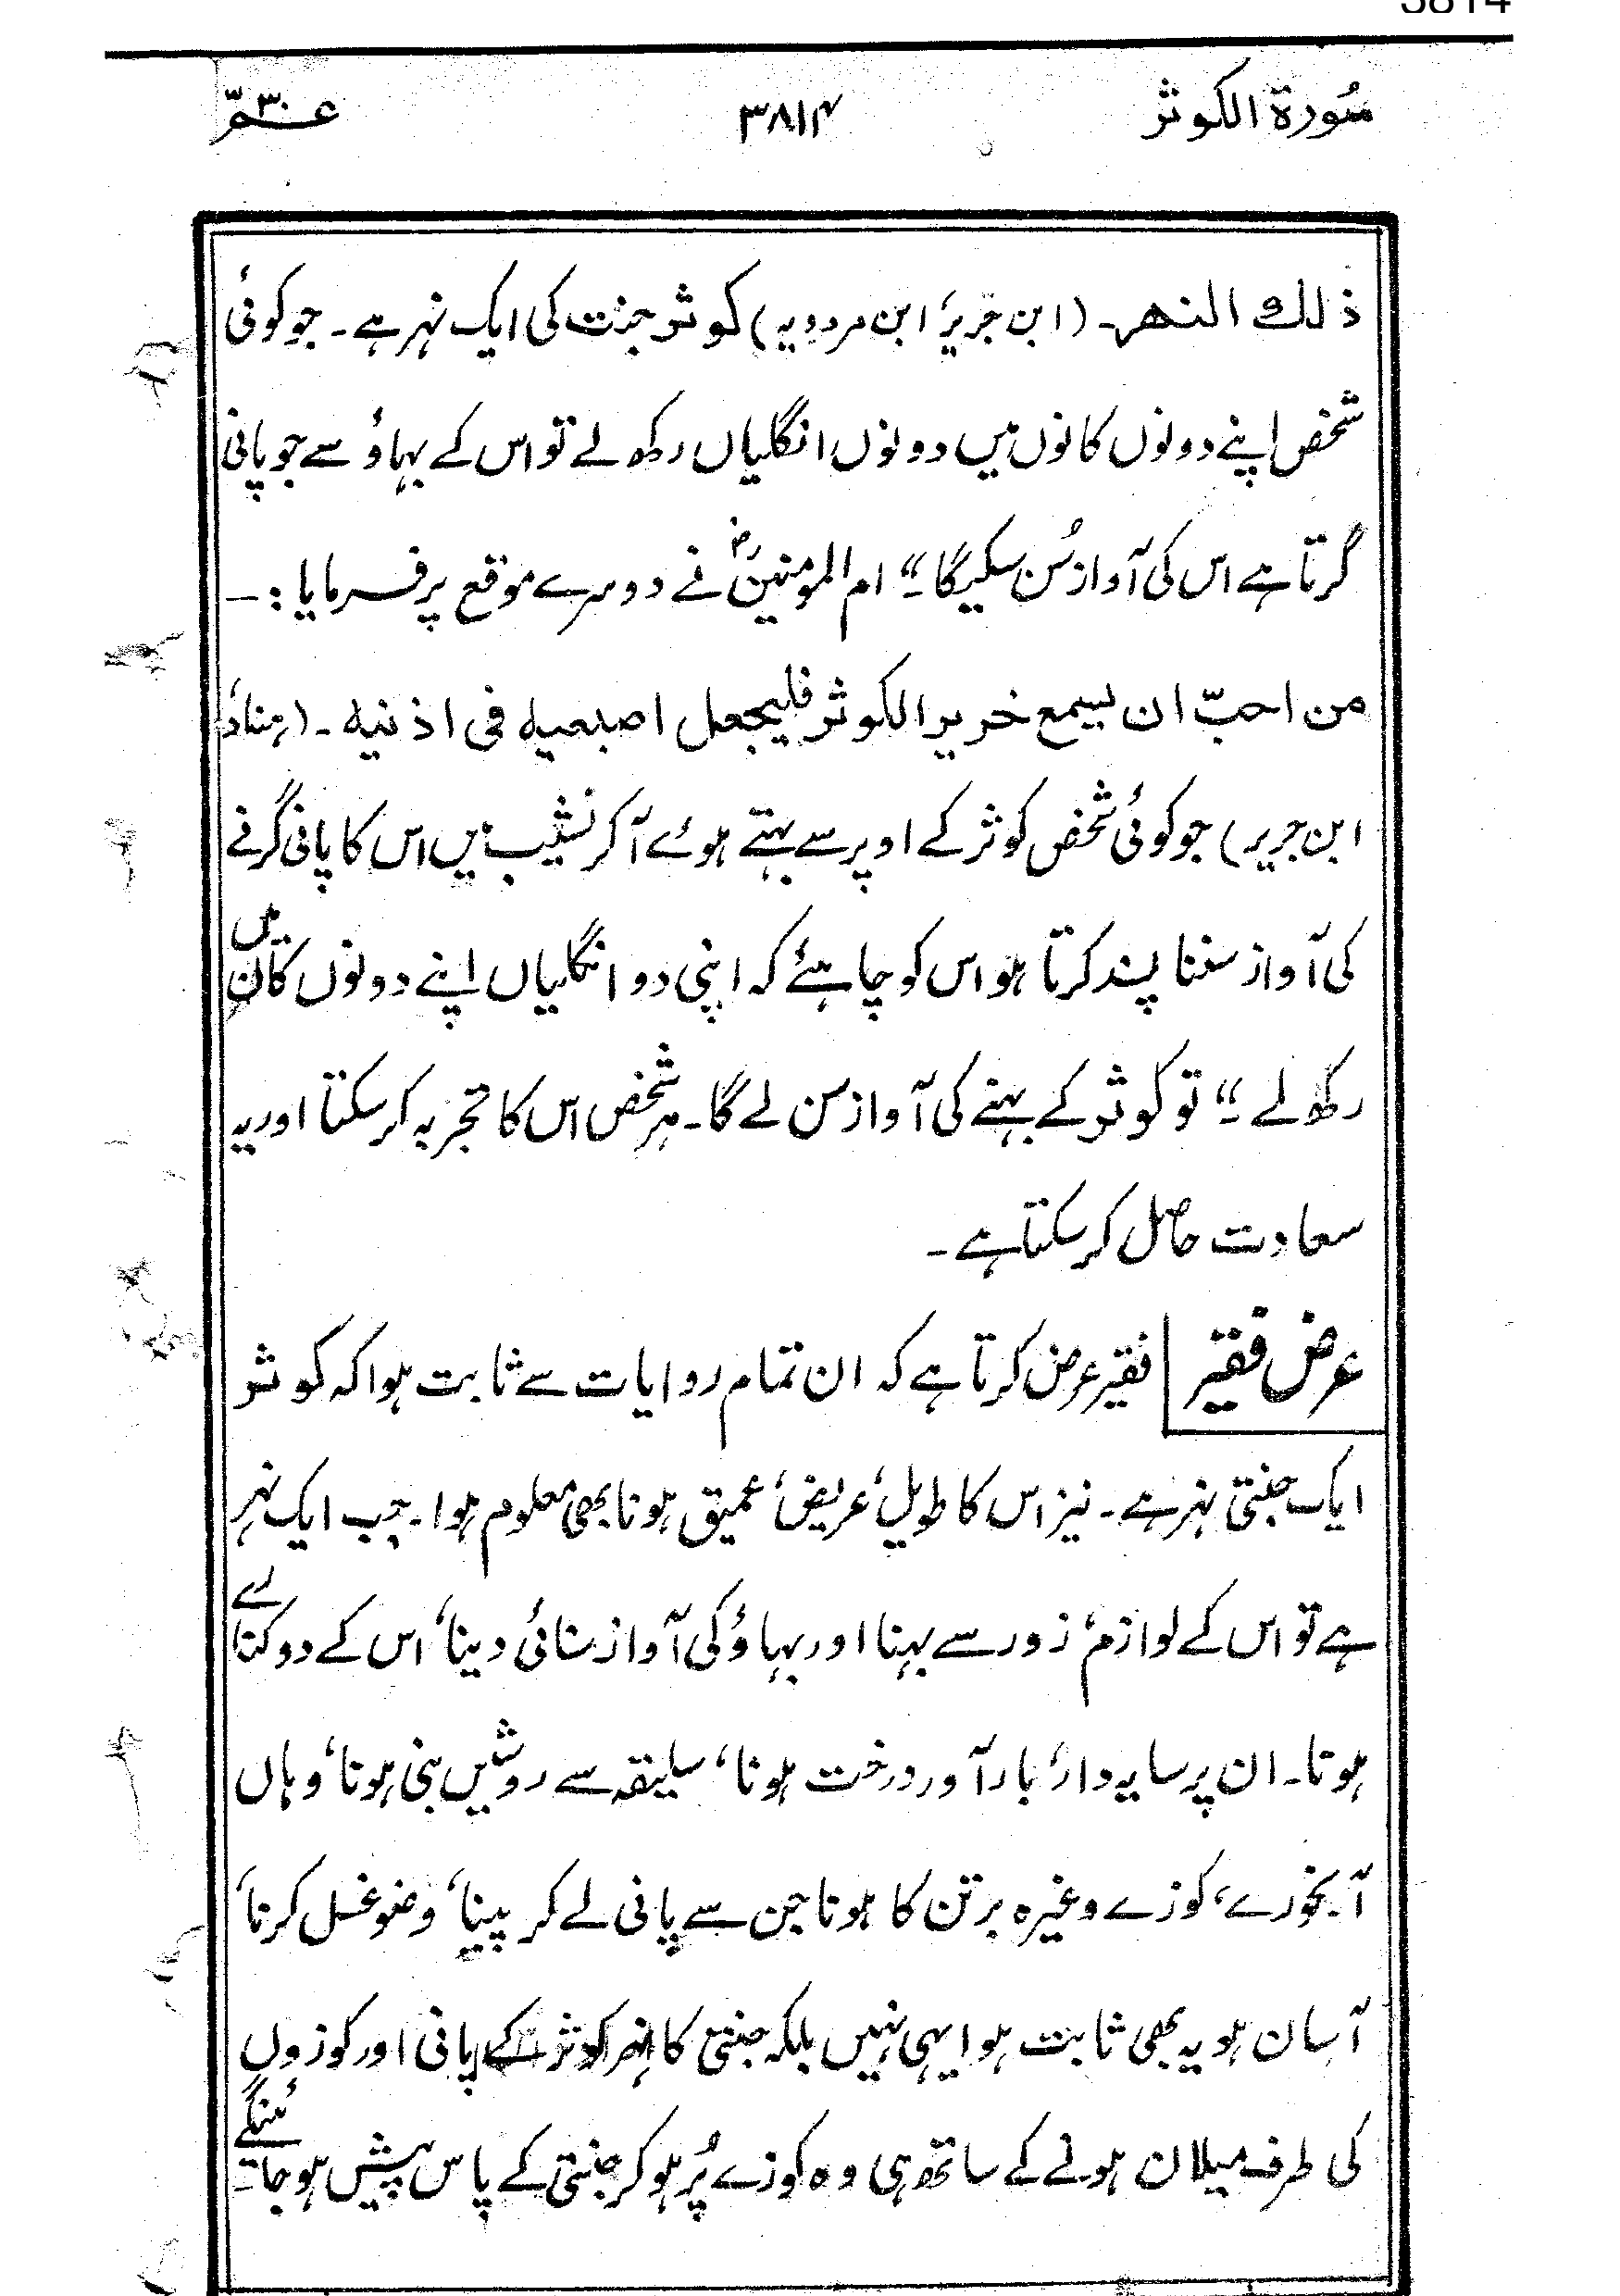 سُورۃ الکوثر ۳۸۱۴ عــمّ ۳۰
ذٰلک النھر۔ (ابن جریر، ابن مردویہ) کوثر جنت کی ایک نہر ہے۔ جو کوئی
شخص اپنے دونوں کانوں میں دونوں انگلیاں رکھ لے تو اس کے بہاؤ سے جو پانی
گرتا ہے اس کی آواز سُن سکیگا۔“ ام المومنینؓ نے دوسرے موقع پر فرمایا :۔
من احبّ ان یسمع خریر الکوثر فلیجعل اصبعیہ فی اذنیہ۔ (ہناد،
ابن جریر) جو کوئی شخص کوثر کے اوپر سے بہتے ہوئے آکر نشیب میں اس کا پانی گرنے
کی آواز سننا پسند کرتا ہو اس کو چاہئے کہ اپنی دو انگلیاں اپنے دونوں کان میں
رکھ لے۔“ تو کوثر کے بہنے کی آواز سن لے گا۔ ہر شخص اس کا تجربہ کر سکتا اور یہ
سعادت حاصل کر سکتا ہے۔
عرض فقیر فقیر عرض کرتا ہے کہ ان تمام روایات سے ثابت ہوا کہ کوثر
ایک جنتی نہر ہے۔ نیز اس کا طویل، عریض، عمیق ہونا بھی معلوم ہوا۔ جب ایک نہر
ہے تو اس کے لوازم، زور سے بہنا اور بہاؤ کی آواز سنائی دینا، اس کے دو کنارے
ہوتا۔ ان پر سایہ دار، بار آور درخت ہونا، سلیقہ سے روشیں بنی ہونا، وہاں
آبخورے، کوزے وغیرہ برتن کا ہونا جن سے پانی لے کر پینا، وضو غسل کرنا،
آسان ہو یہ بھی ثابت ہوا یہی نہیں بلکہ جنتی کا نہر کوثر کے پانی اور کوزوں
کی طرف میلان ہونے کے ساتھ ہی وہ کوزے پُر ہو کر جنتی کے پاس پیش ہو جائینگے۔